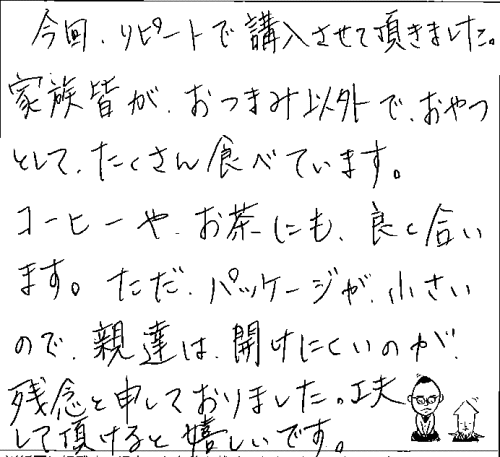 今回、リピートで講入させて頂きました。
家族皆が、おつまみ以外で、おやつ
として、たくさん食べています。
コーヒーや、お茶にも、良く合い
ます。ただ、パッケージが、小さい
ので、親達は、開けにくいのが、
残念と申しておりました。工夫
して頂けると嬉しいです。